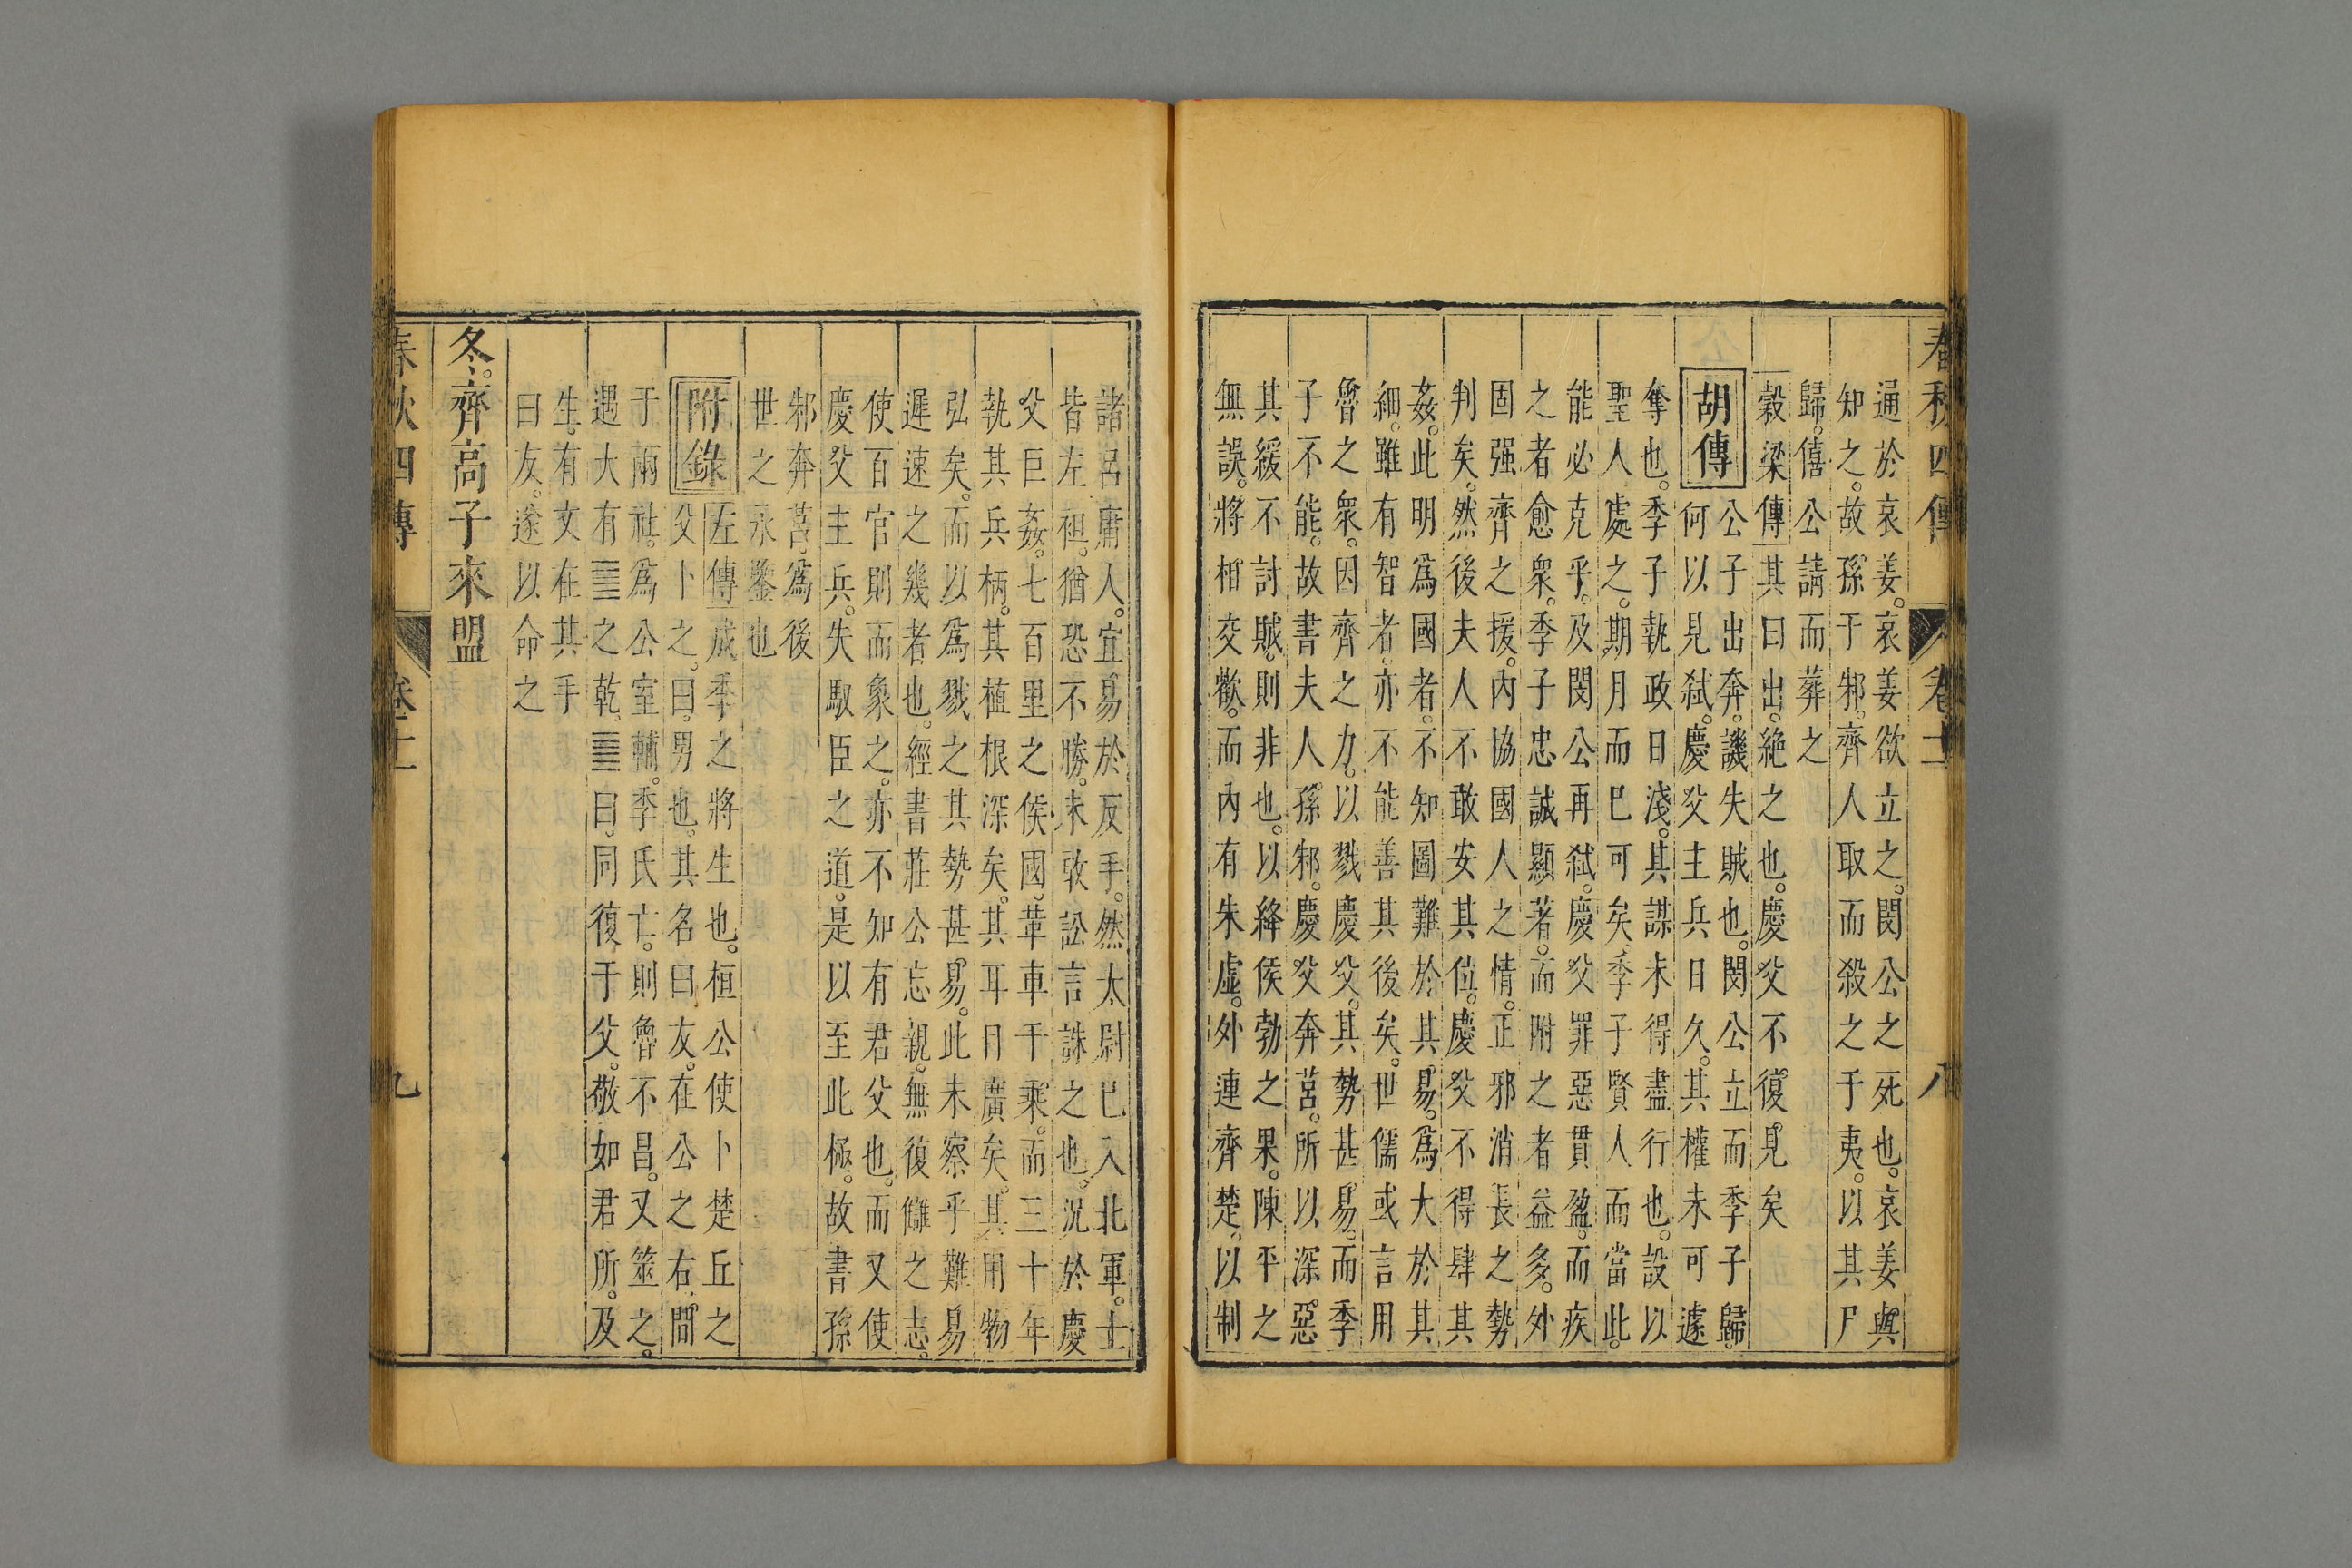 春秋四傳 卷十一 八
通於哀姜。哀姜欲立之。閔公之死也。哀姜與
知之。故孫于邾。齊人取而殺之于夷。以其尸
歸。僖公請而葬之
穀梁傳 其曰出。絕之也。慶父不復見矣
胡傳 公子出奔。譏失賊也。閔公立而季子歸。
何以見弑。慶父主兵日久。其權未可遽
奪也。季子執政日淺。其謀未得盡行也。設以
聖人處之。期月而巳可矣。季子賢人而當此。
能必克乎。及閔公再弑。慶父罪惡貫盈。而疾
之者愈衆。季子忠誠顯著。而附之者益多。外
固强齊之援。內協國人之情。正邪消長之勢
判矣。然後夫人不敢安其位。慶父不得肆其
姦。此明爲國者。不知圖難於其易。爲大於其
細。雖有智者。亦不能善其後矣。世儒或言用
魯之衆。因齊之力。以戮慶父。其勢甚易。而季
子不能。故書夫人孫邾。慶父奔莒。所以深惡
其緩不討賊。則非也。以絳侯勃之果。陳平之
無誤。將相交歡。而內有朱虛。外連齊楚。以制
諸呂庸人。宜易於反手。然太尉已入北軍。士
皆左袒。猶恐不勝。未敢訟言誅之也。況於慶
父巨姦。七百里之侯國。革車千乘。而三十年
執其兵柄。其植根深矣。其耳目廣矣。其用物
弘矣。而以爲戮之其勢甚易。此未察乎難易
遲速之幾者也。經書莊公忘親。無復讎之志。
使百官則而象之。亦不知有君父也。而又使
慶父主兵。失馭臣之道。是以至此極。故書孫
邾奔莒。爲後
世之永鑒也
附錄 左傳 成季之將生也。桓公使卜楚丘之
父卜之。曰。男也。其名曰友。在公之右。間
于兩社。爲公室輔。季氏亡。則魯不昌。又筮之。
遇大有䷍之乾。䷀曰。同復于父。敬如君所。及
生。有文在其手
曰友。遂以命之
冬。齊高子來盟
春秋四傳 卷十一 九